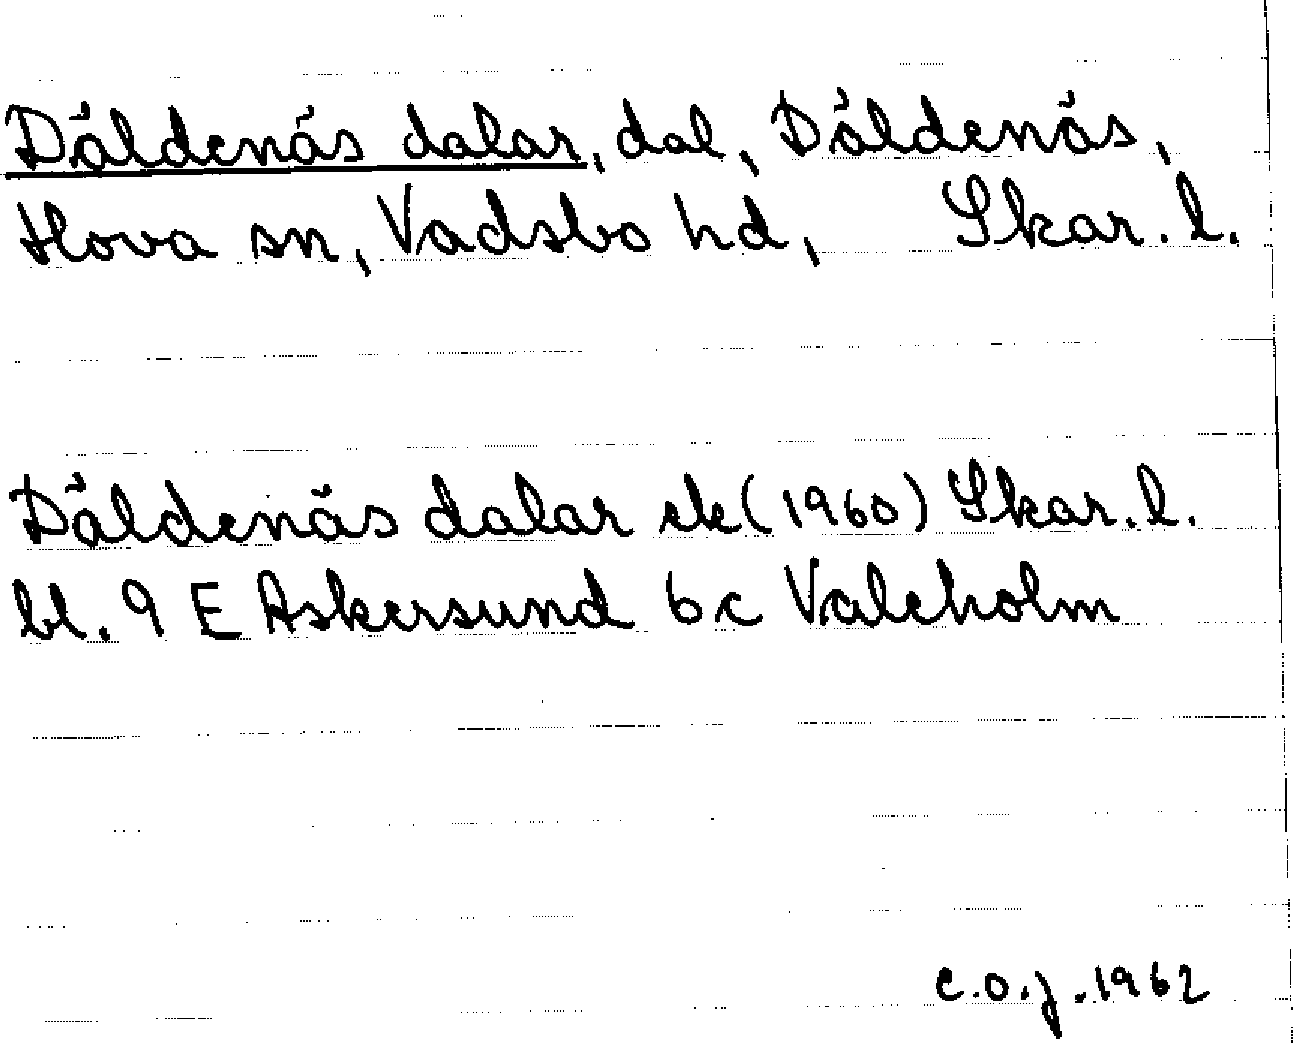 Däldenäs dalar, dal, Däldenäs,
Hova sn, Vadsbo hd, Skar. l.
Däldenäs dalar ek (1960) Skar. l.
bl. 9 E Askersund 6c Valeholm
C.O.J. 1962